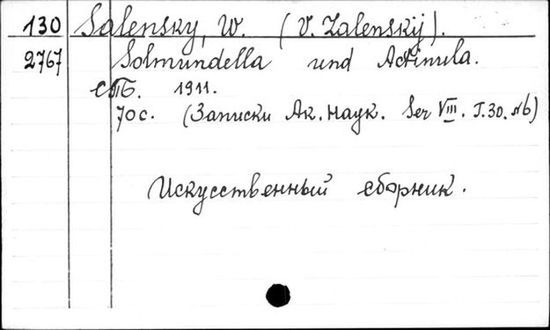 130 Salensky, W. (V. Zalenskij).
2767 Solmundella und Actinula.
СПБ. 1911.
70 с. (Записки Ак. Наук. Ser VIII. T.30. №6)
Искусственный сборник.